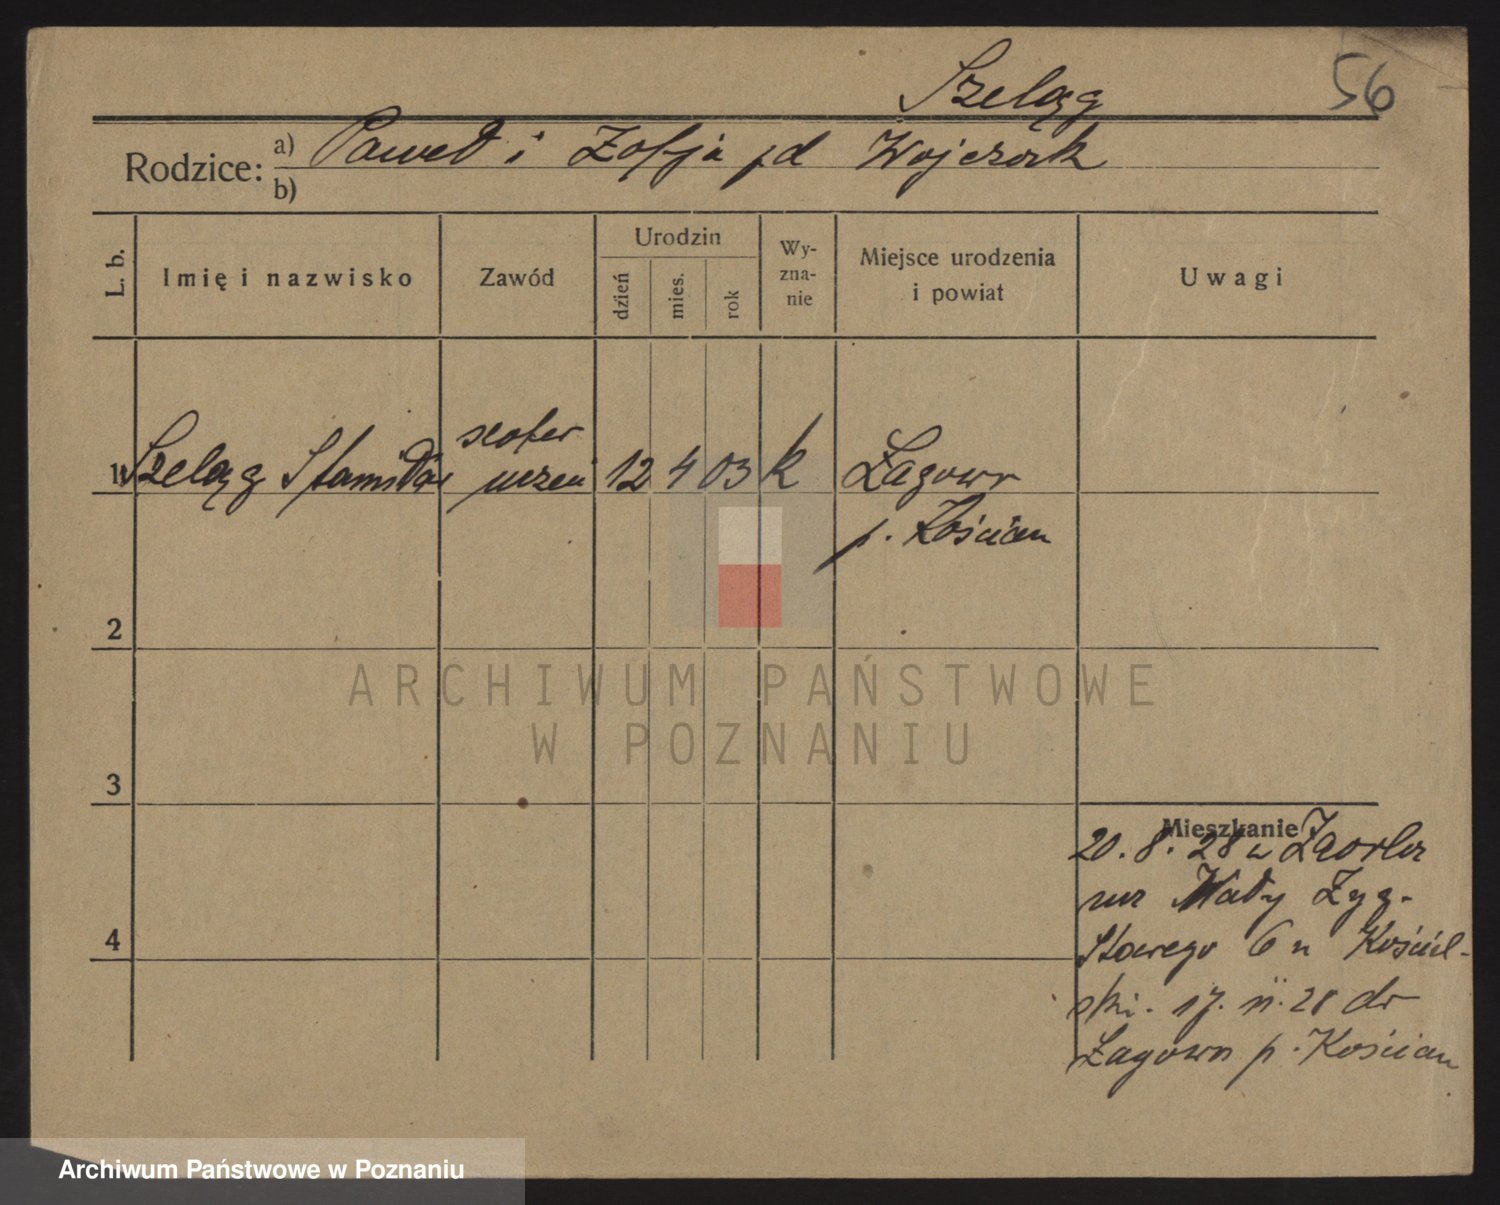 Szeląg
56
Rodzice: a) Paweł i Zofja pd Wojczak
b)
L. b.
Imię i nazwisko
Zawód
Urodzin
dzień
mies.
rok
Wy-
zna-
nie
Miejsce urodzenia
i powiat
Uwagi
szofer
1 Szeląg Stanisław uczeń 12 4 03 k Łagowo
p. Kościan
2
3
4
Mieszkanie
20. 8. 28 z
Mały Zyg.
Starego 6 u Kościel-
ski. 17. 11. 28 do
Łagowo p. Kościan
ARCHIWUM PAŃSTWOWE
W POZNANIU
Archiwum Państwowe w Poznaniu